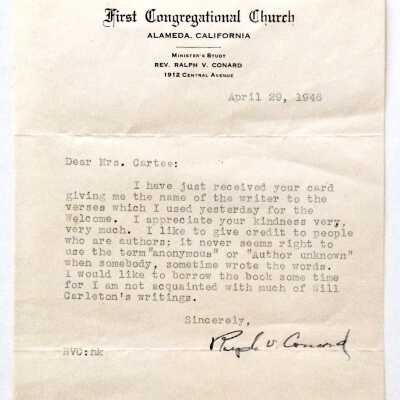 First Congregational Church
ALAMEDA, CALIFORNIA
MINISTER'S STUDY
REV. RALPH V. CONARD
1912 CENTRAL AVENUE
April 29, 1946
Dear Mrs. Cartee:
I have just received your card
giving me the name of the writer to the
verses which I used yesterday for the
Welcome. I appreciate your kindness very,
very much. I like to give credit to people
who are authors; it never seems right to
use the term"anonymous" or "Author unknown"
when somebody, sometime wrote the words.
I would like to borrow the book some time
for I am not acquainted with much of Will
Carleton's writings.
Sincerely,
Ralph V. Conard
RVC:hk